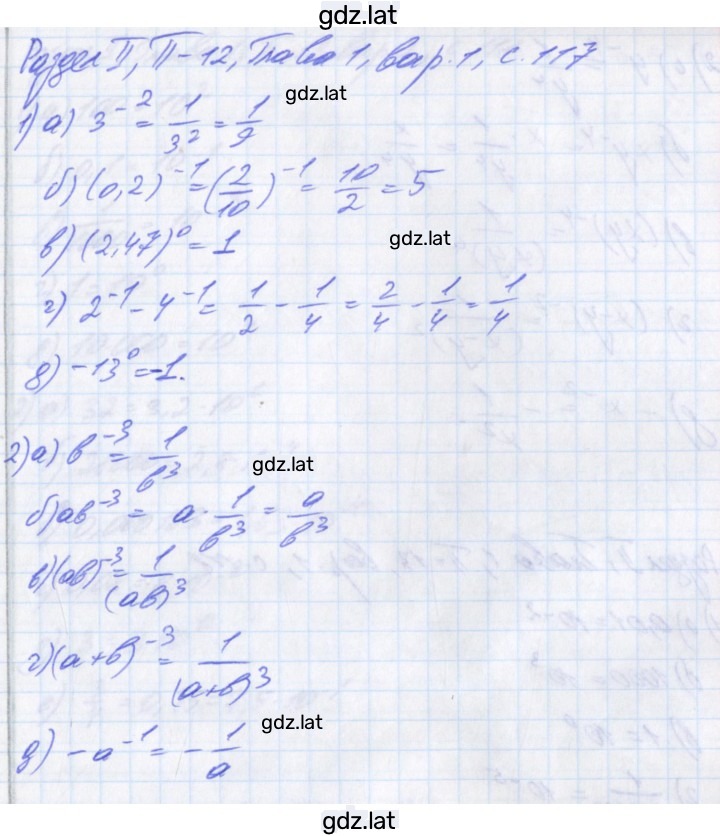 gdz.lat
Раздел II, П-12, Глава 1, вар. 1, с. 117
gdz.lat
1) а) 3⁻² = 1/3² = 1/9
б) (0,2)⁻¹ = (2/10)⁻¹ = 10/2 = 5
в) (2,47)⁰ = 1
gdz.lat
г) 2⁻¹ - 4⁻¹ = 1/2 - 1/4 = 2/4 - 1/4 = 1/4
д) -13⁰ = -1.
2) а) b⁻³ = 1/b³
gdz.lat
б) ab⁻³ = a · 1/b³ = a/b³
в) (ab)⁻³ = 1/(ab)³
г) (a+b)⁻³ = 1/(a+b)³
gdz.lat
д) -a⁻¹ = -1/a
gdz.lat